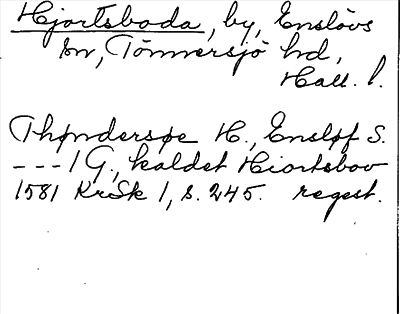 Hjortsboda, by, Enslövs
sn, Tönnersjö hd,
Hall. l.
Thøndersøe H., Ensløf S.
---1 G., kaldet Hiortsbov
1581 KrSk 1, s. 245. regest.